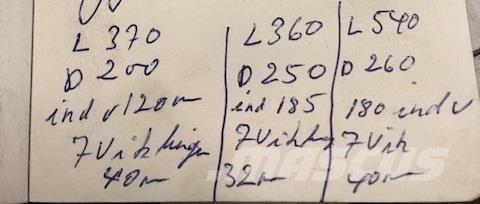 L 370
D 200
ind v 120m
7 Viklinger
40m
L 360
D 250
ind 185
7 Vikling
32m
L 540
D 260
180 ind v
7 Vik
40m
MASCUS